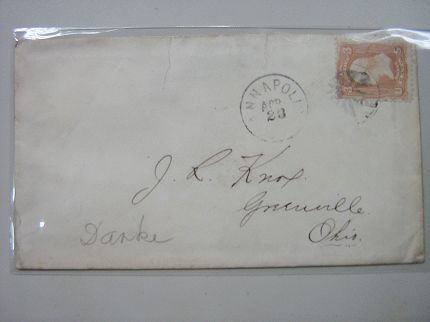 ANNAPOLI
APR
23
J. L. Knox.
Greenville.
Ohio.
Darke